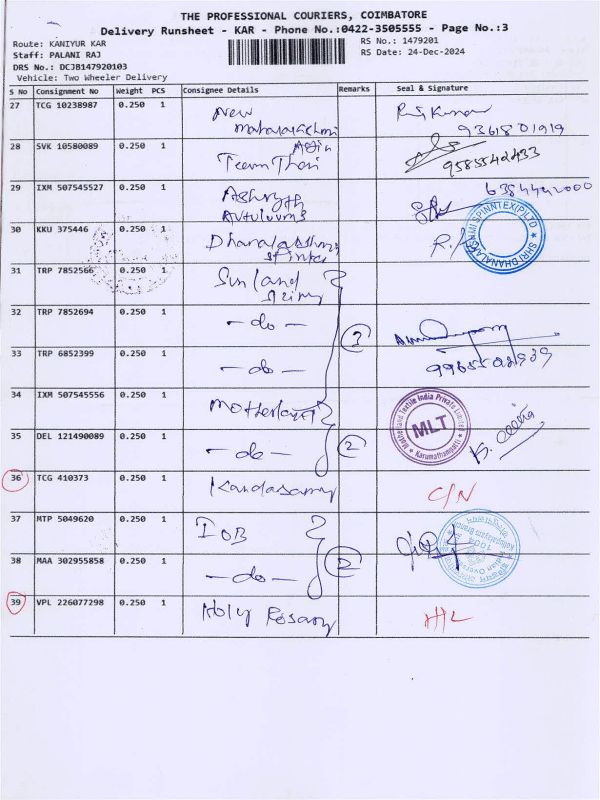 THE PROFESSIONAL COURIERS, COIMBATORE
Delivery Runsheet - KAR - Phone No.:0422-3505555 - Page No.:3
Route: KANIYUR KAR
RS No.: 1479201
Staff: PALANI RAJ
RS Date: 24-Dec-2024
DRS No.: DCJB147920103
Vehicle: Two Wheeler Delivery
S No Consignment No Weight PCS Consignee Details Remarks Seal & Signature
27 TCG 10238987 0.250 1 New
9361801919
28 SVK 10580089 0.250 1
Team Thai 9585542433
29 IXM 507545527 0.250 1
6384442000
30 KKU 375446 0.250 1
SHRI DHANALAKSHMI SPINNTEX(P)LTD
31 TRP 7852566 0.250 1 Sunland
32 TRP 7852694 0.250 1 - do -
3
33 TRP 6852399 0.250 1 - do -
34 IXM 507545556 0.250 1 Motherland
Motherland Textile India Private Limited
MLT
Karumathampatti
35 DEL 121490089 0.250 1 - do - 2
36 TCG 410373 0.250 1 Kandasamy C/N
37 MTP 5049620 0.250 1 IOB
38 MAA 302955858 0.250 1 - do - 2
39 VPL 226077298 0.250 1 Holy Rosary